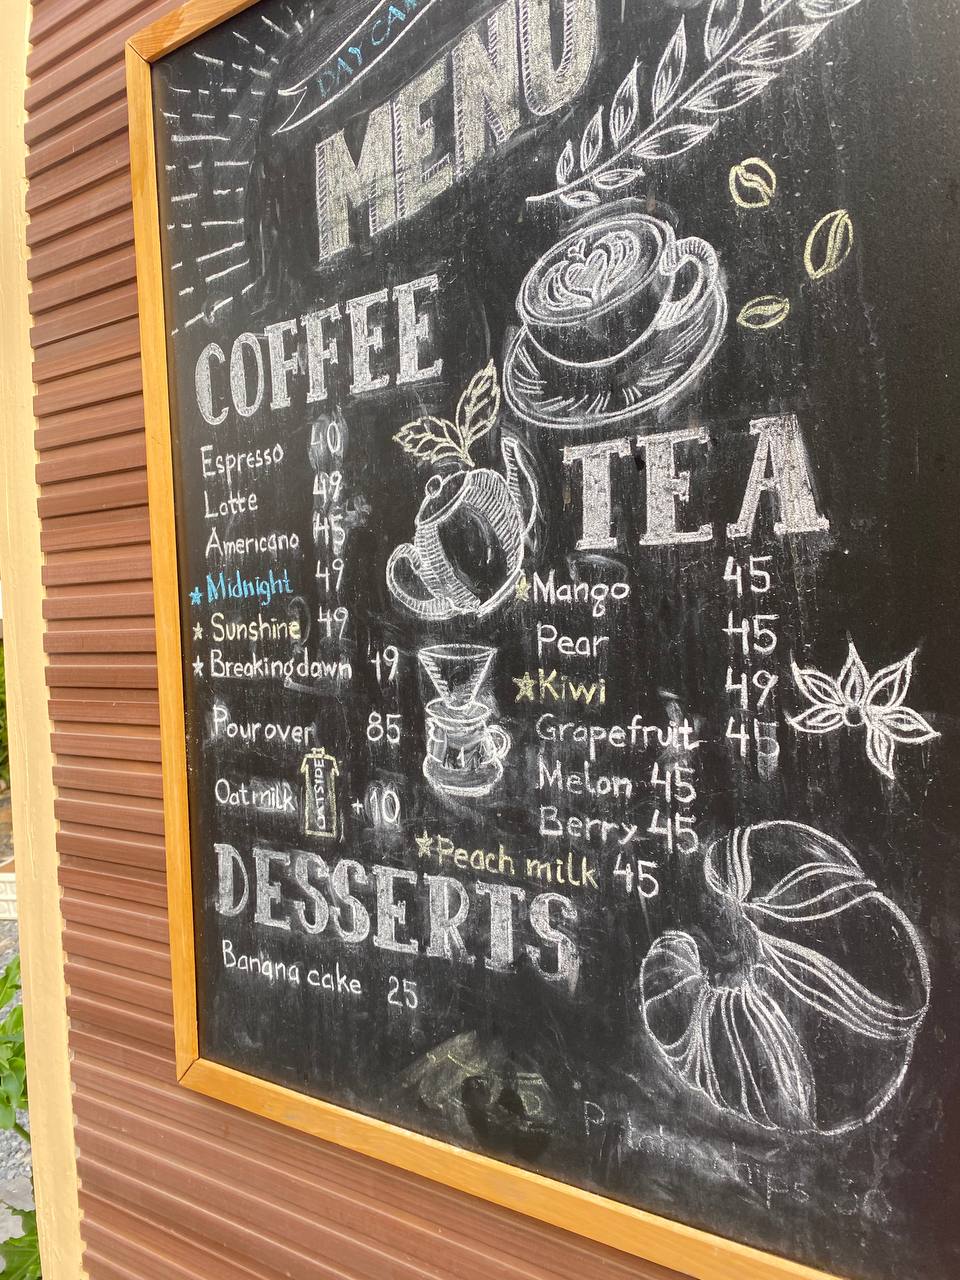 DAY CA
MENU
COFFEE
Espresso 40
Latte 49
Americano 45
★Midnight 49
★Sunshine 49
★Breakingdawn 49
Pourover 85
Oatmilk OATSIDE +10
TEA
★Mango 45
Pear 45
★Kiwi 49
Grapefruit 45
Melon 45
Berry 45
★Peach milk 45
DESSERTS
Banana cake 25